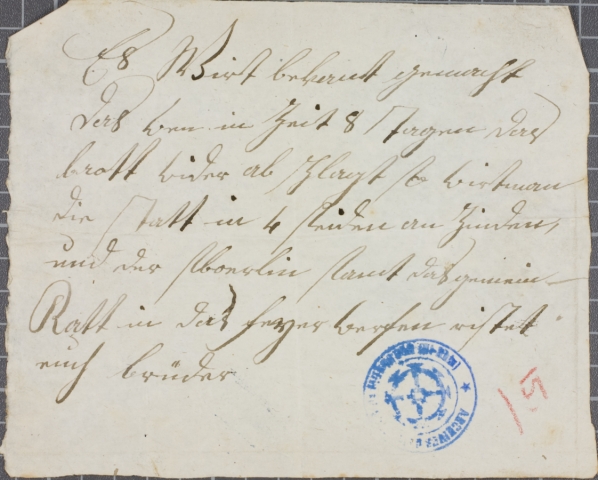 Es Wirt bekant gemacht
das wen in Zeit 8 Tagen das
brott wider ab schlagt so wirt man
die statt in 4 seiden an Zinden,
und der stboerlin samt das gemein
Ratt in das feyer werfen ristet
eich brüder
ARCHIVES
15